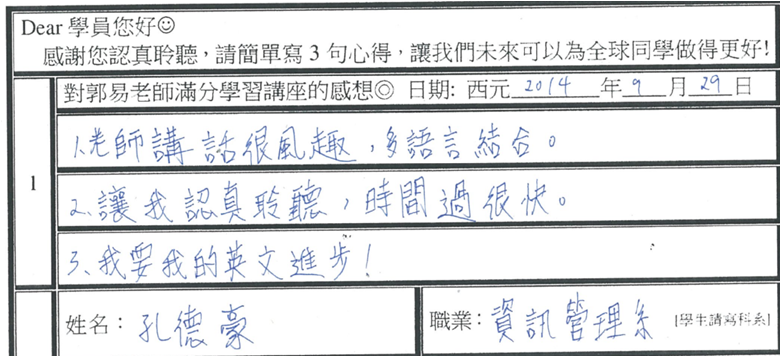 Dear 學員您好☺
感謝您認真聆聽，請簡單寫 3 句心得，讓我們未來可以為全球同學做得更好!
對郭易老師滿分學習講座的感想◎ 日期: 西元 2014 年 9 月 29 日
1
1.老師講話很風趣，多語言結合。
2.讓我認真聆聽，時間過很快。
3.我要我的英文進步！
姓名：孔德豪 職業：資訊管理系 [學生請寫科系]